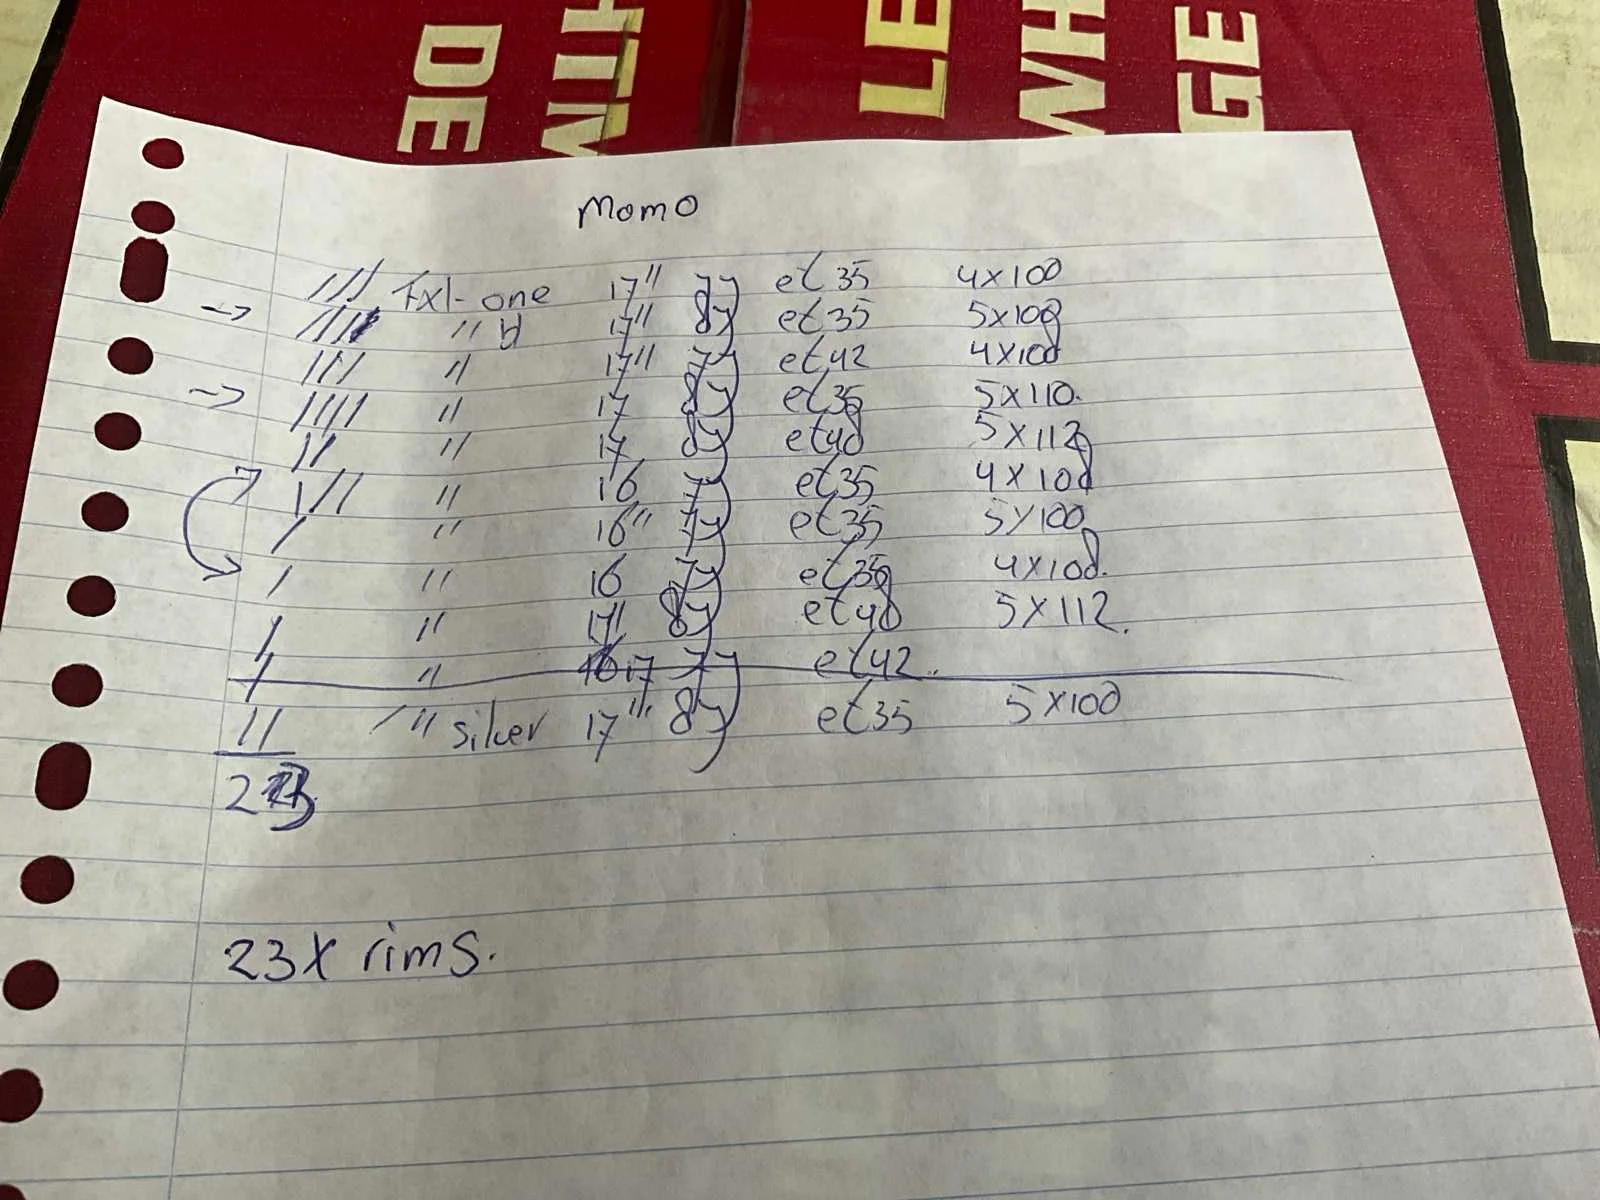 DE
HTIM
LE
WH
GE
momo
/// Fxl-one 17" 7J et35 4x100
→ //// " 17" 8J et35 5x100
/// " 17" 7J et42 4x100
→ //// " 17 8J et35 5x110.
// " 17 8J et48 5x112
/// " 16 7J et35 4x100
/ " 16" 7J et35 5x100
/ " 16 7J 4x108.
/ " 17" 8J et48 5x112.
/ " 17 7J et42.
// " silver 17" 8J et35 5x100
23
23x rims.